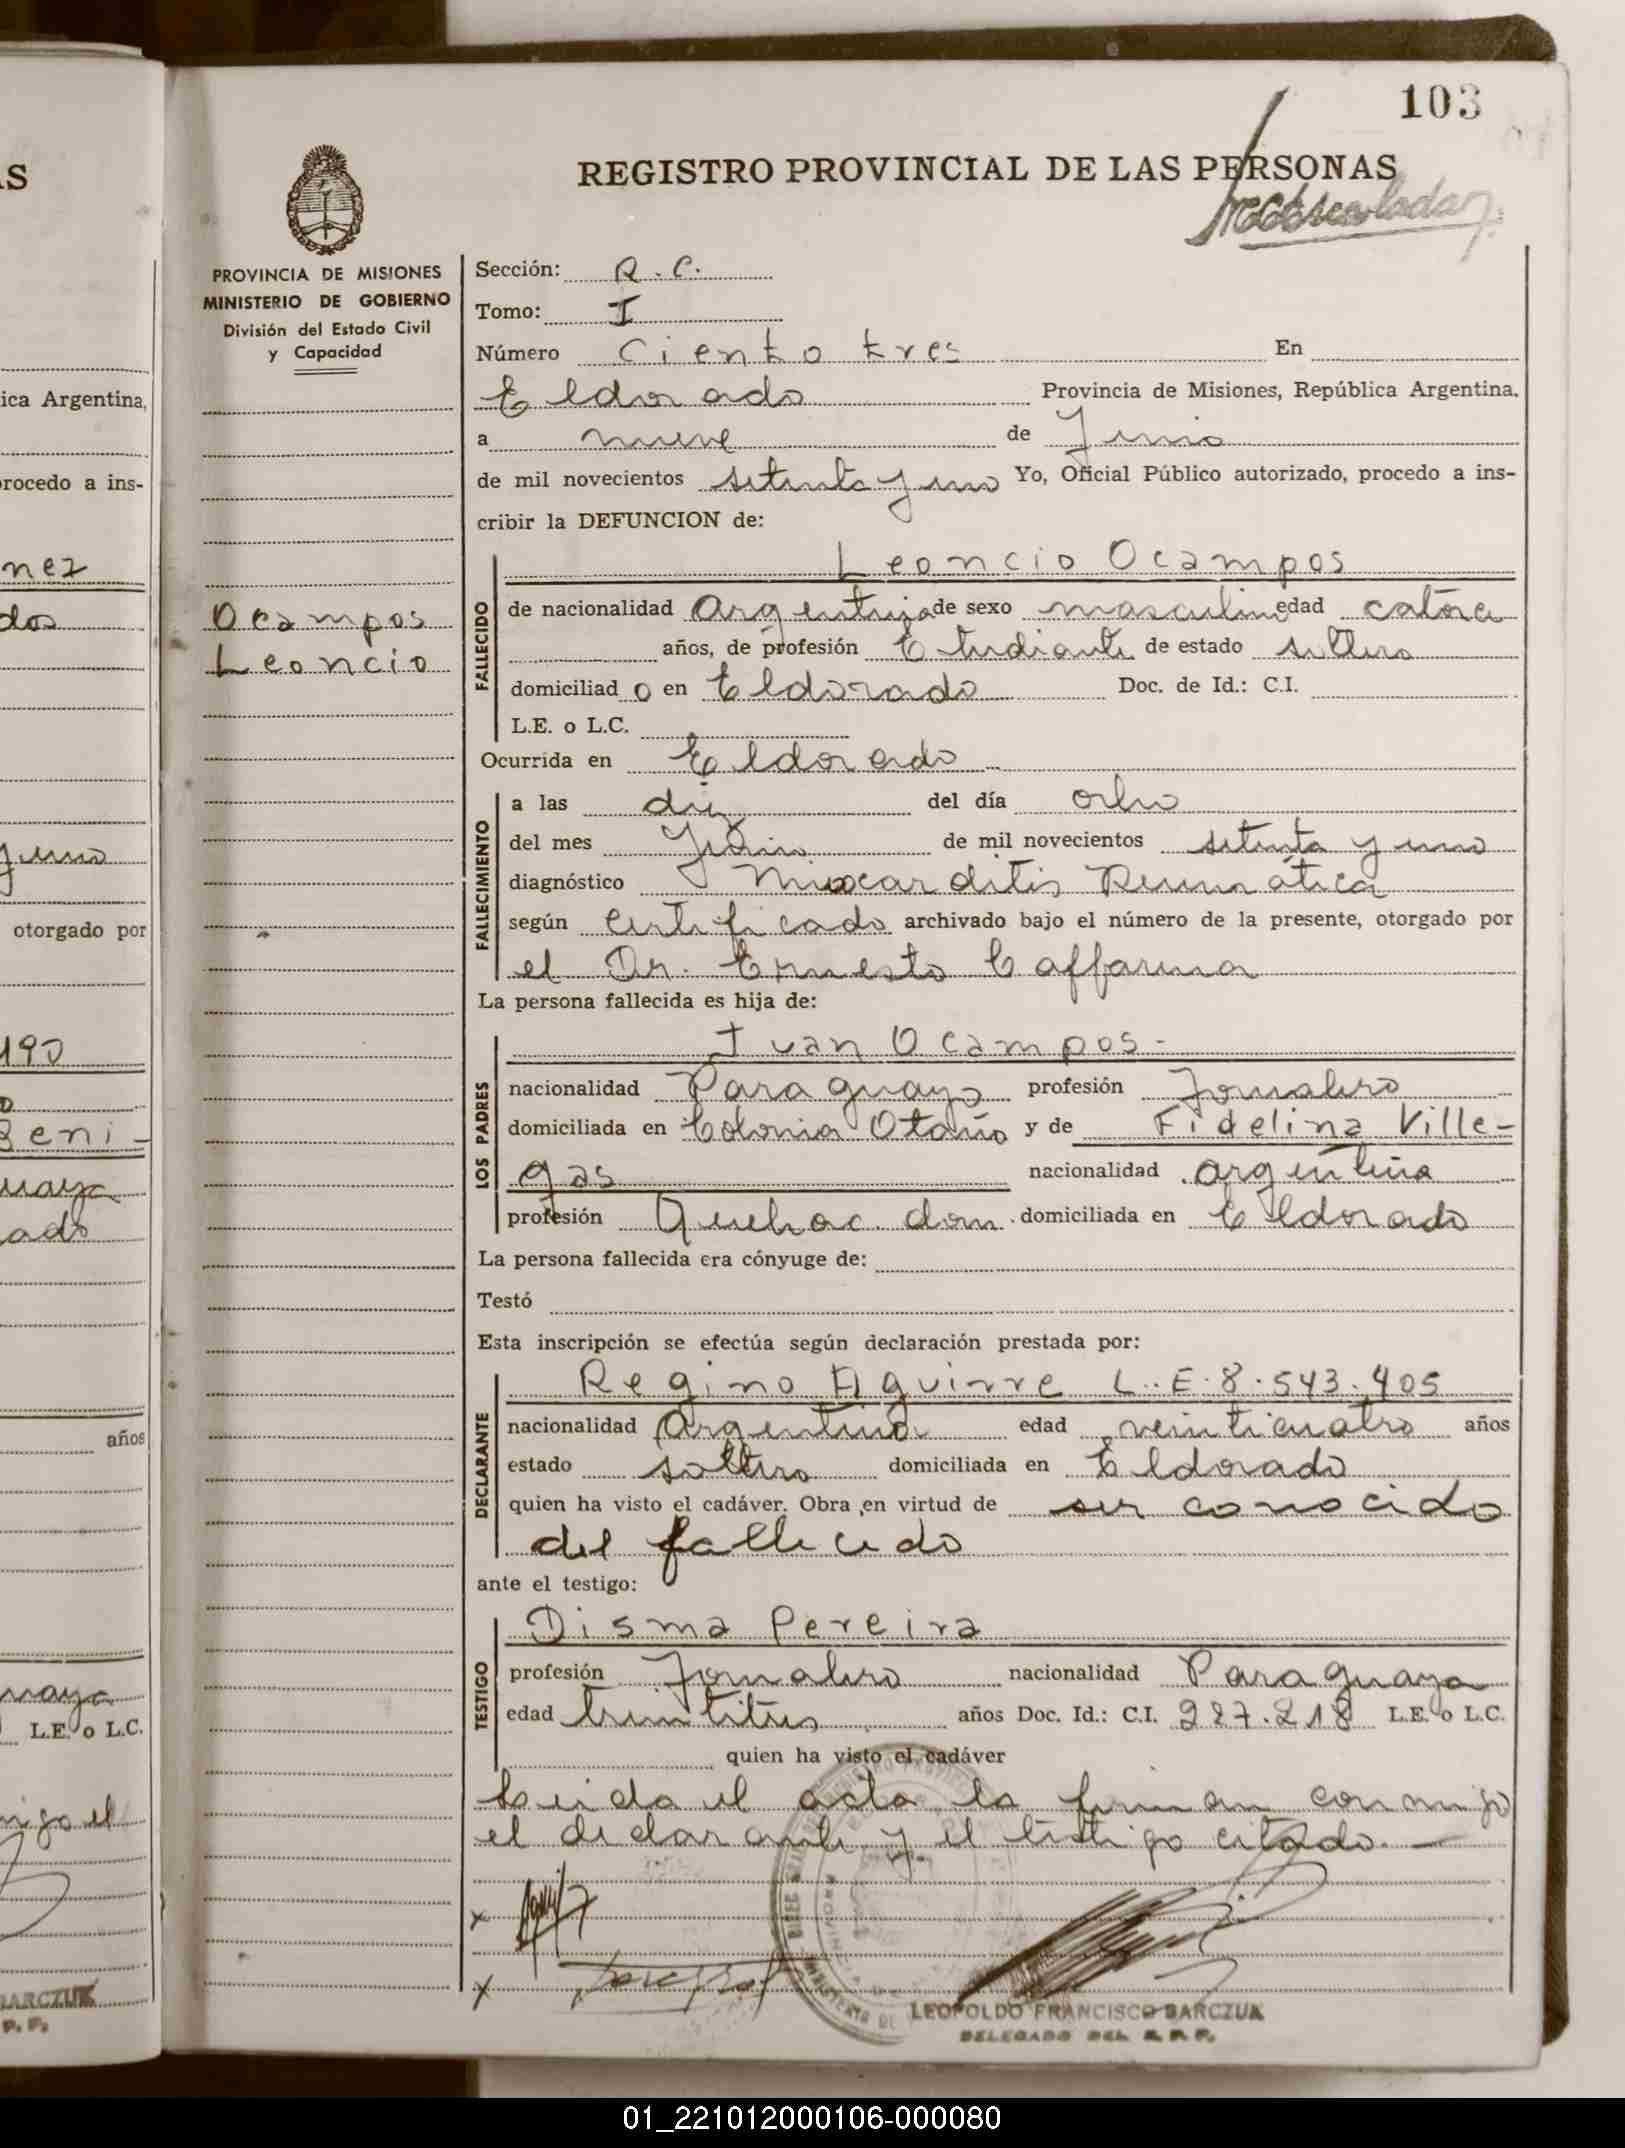 103
REGISTRO PROVINCIAL DE LAS PERSONAS
PROVINCIA DE MISIONES
MINISTERIO DE GOBIERNO
División del Estado Civil
y Capacidad
Ocampos
Leoncio
Sección: R.C.
Tomo: I
Número Ciento tres En
Eldorado Provincia de Misiones, República Argentina.
a nueve de Junio
de mil novecientos setenta y uno Yo, Oficial Público autorizado, procedo a ins-
cribir la DEFUNCION de:
FALLECIDO
Leoncio Ocampos
de nacionalidad Argentina de sexo masculino edad catorce
años, de profesión Estudiante de estado soltero
domiciliad o en Eldorado Doc. de Id.: C.I.
L.E. o L.C.
Ocurrida en Eldorado
FALLECIMIENTO
a las diez del día ocho
del mes Junio de mil novecientos setenta y uno
diagnóstico Miocarditis Reumática
según certificado archivado bajo el número de la presente, otorgado por
el Dr. Ernesto Caffarena
La persona fallecida es hija de:
LOS PADRES
Juan Ocampos-
nacionalidad Paraguayo profesión Jornalero
domiciliada en Colonia Otaño y de Fidelina Ville-
gas nacionalidad argentina
profesión Quehac. dom. domiciliada en Eldorado
La persona fallecida era cónyuge de:
Testó
Esta inscripción se efectúa según declaración prestada por:
DECLARANTE
Regino Aguirre L.E. 8.543.405
nacionalidad Argentina edad veinticuatro años
estado soltero domiciliada en Eldorado
quien ha visto el cadáver. Obra en virtud de ser conocido
del fallecido
ante el testigo:
TESTIGO
Disma Pereira
profesión Jornalero nacionalidad Paraguaya
edad treintitres años Doc. Id.: C.I. 227.218 L.E. o L.C.
quien ha visto el cadáver
Leida el acta la firman conmigo
el declarante y el testigo citado.—
x
x
LEOPOLDO FRANCISCO BARCZUK
DELEGADO DEL R. P. P.
AS
ica Argentina,
procedo a ins-
nez
dos
y uno
otorgado por
190
Beni-
uaya
ado
años
uaya
L.E. o L.C.
migo el
BARCZUK
P. P.
01_221012000106-000080